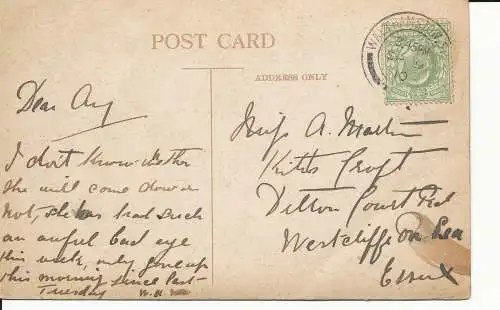 POST CARD
ADDRESS ONLY
Dear Amy
I don't know wether
she will come down or
not, she has had such
an awful bad eye
this week, only got up
this morning since last
Tuesday W.H
Miss A. Martin
Croft
Ditton Court Rd
Westcliffe on Sea
Essex